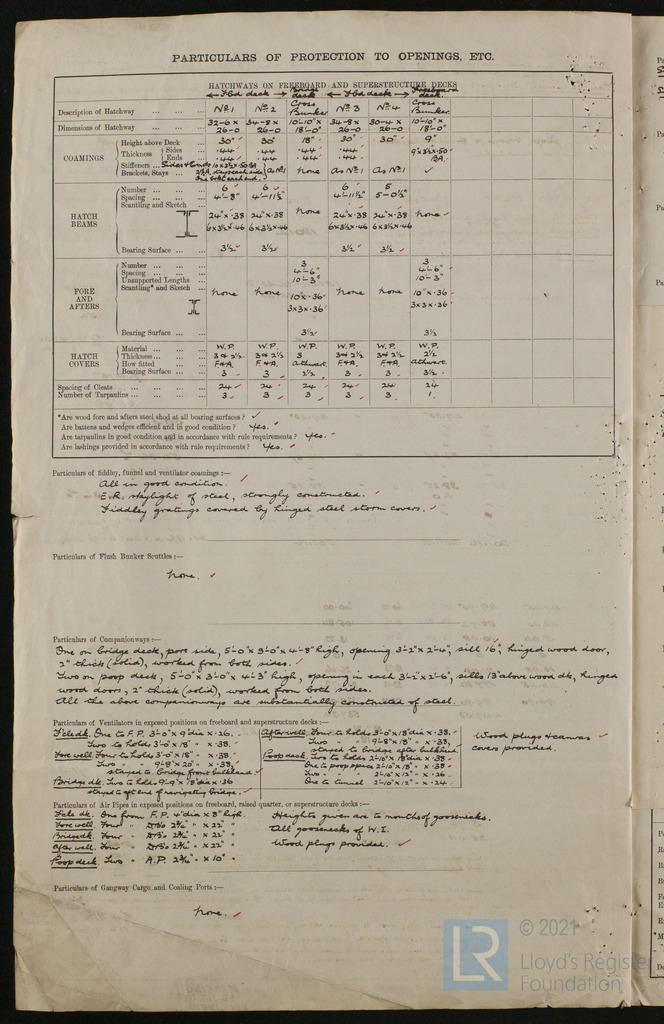 PARTICULARS OF PROTECTION TO OPENINGS, ETC.
HATCHWAYS ON FREEBOARD AND SUPERSTRUCTURE DECKS
Fbd deck Bridge deck Fbd deck
Description of Hatchway No 1 No 2 Cross Bunker No 3 No 4 Cross Bunker
Dimensions of Hatchway ... 32-6 x 26-0 34-8 x 26-0 10'-10" x 18'-0" 34-8 x 26-0 30-4 x 26-0 10'-10" x 18'-0"
COAMINGS
Height above Deck ... 30" 30" 18" 30" 30" 9"
Thickness Sides ·44 ·44 ·44 ·44 9"x3½x·50 BA.
Ends ·44 ·44 ·44 ·44
Stiffeners
Brackets, Stays ... As No 1 none As No 1 As No 1
HATCH BEAMS
Number ... 6 6 none 6 5 none
Spacing ... 4'-8" 4'-11½" 4'-11½" 5'-0½"
Scantling and Sketch 24"x·38 24"x·38 24"x·38 24"x·38
6x3½x·46 6x3½x·46 6x3½x·46 6x3½x·46
Bearing Surface ... 3½" 3½ 3½ 3½
FORE AND AFTERS
Number ... 3 3
Spacing ... 4'-6" 4'-6"
Unsupported Lengths 10'-3" 10'-3"
Scantling* and Sketch none none 10"x·36 none none 10"x·36
3x3x·36 3x3x·36
Bearing Surface ... 3½ 3½
HATCH COVERS
Material ... W.P. W.P. W.P. W.P. W.P. W.P.
Thickness ... 3 & 2½ 3 & 2½ 3 3 & 2½ 3 & 2½ 2½
How fitted ... F&A. F&A. athwart. F&A. F&A. athwart.
Bearing Surface ... 3 3 2½ 3 3 3½
Spacing of Cleats ... 24 24 24 24 24 24
Number of Tarpaulins ... 3 3 3 3 3 1
*Are wood fore and afters steel shod at all bearing surfaces?
Are battens and wedges efficient and in good condition? Yes.
Are tarpaulins in good condition and in accordance with rule requirements? Yes.
Are lashings provided in accordance with rule requirements? Yes.
Particulars of fiddley, funnel and ventilator coamings:—
All in good condition.
E.R. skylight of steel, strongly constructed.
Fiddley gratings covered by hinged steel storm covers.
Particulars of Flush Bunker Scuttles:—
None.
Particulars of Companionways:—
One on bridge deck, port side, 5'-0" x 3'-0" x 4'-8" high, opening 3'-2" x 2'-4", sill 16", hinged wood door,
2" thick (solid), worked from both sides.
Two on poop deck, 5'-0" x 3'-0" x 4'-3" high, opening in each 3'-2" x 2'-6", sills 13" above wood dk, hinged
wood doors, 2" thick (solid), worked from both sides.
All the above companionways are substantially constructed of steel.
Particulars of Ventilators in exposed positions on freeboard and superstructure decks:—
Fcle dk. One to F.P. 3'-0" x 9" dia x ·26.
Two to holds 3'-0" x 18" " x ·38.
Fore well Four to holds 3'-0" x 18" " x ·38.
Two " 9'-8" x 20" " x ·38,
stayed to bridge front bulkhead.
Bridge dk. Two to holds 9'-9" x 18" dia x ·36
stayed to aft end of navigating bridge.
After well. Four to holds 3'-0" x 18" dia x ·38.
Two " 9'-8" x 18" " x ·38,
stayed to bridge after bulkhead.
Poop deck. Two to holds 2'-10" x 18" dia x ·38
One to poop space 2'-10" x 18" " x ·38.
Two " " 2'-10" x 12" " x ·26
One to tunnel 2'-10" x 12" " x ·24.
Wood plugs & canvas
covers provided.
Particulars of Air Pipes in exposed positions on freeboard, raised quarter, or superstructure decks:—
Fcle dk. One from F.P. 4" dia x 3" high.
Fore well. Four " x 22" "
Bridge dk. Four " x 22" "
After well. Four " x 22" "
Poop deck. Two " A.P. x 10" "
Heights given are to mouths of goosenecks.
All goosenecks of W.I.
Wood plugs provided.
Particulars of Gangway Cargo and Coaling Ports:—
None.
© 2021
LR
Lloyd's Register
Foundation